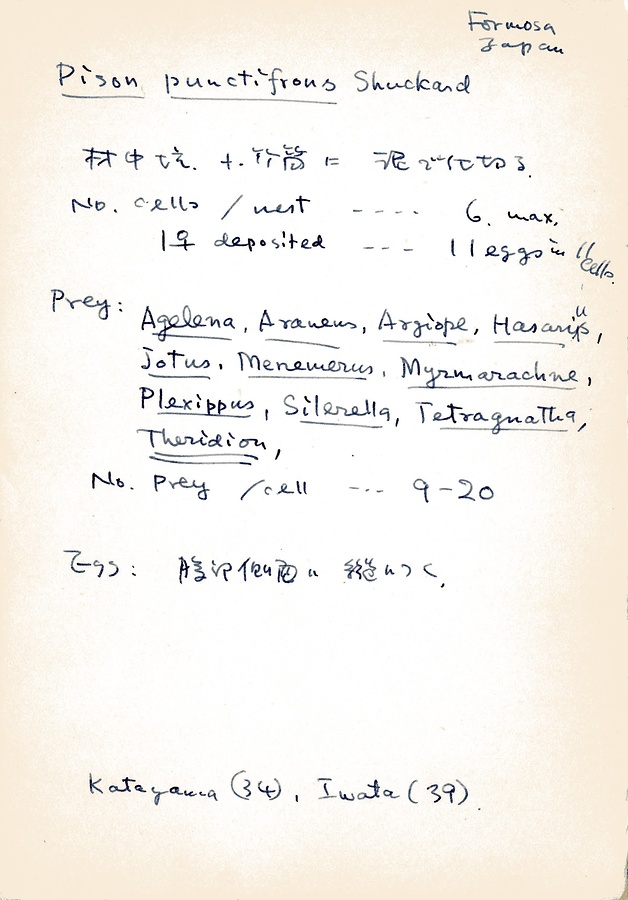 Formosa
Japan
Pison punctifrons Shuckard
材中坑, 竹筒ニ 泥で仕切る.
No. cells / nest ---- 6. max.
1♀ deposited --- 11 eggs in 11 cells.
Prey: Agelena, Araneus, Argiope, Hasarius,
Jotus, Menemerus, Myrmarachne,
Plexippus, Silerella, Tetragnatha,
Theridion,
No. Prey /cell --- 9-20
Egg: 腹部側面ニ 縦につく.
Katayama (34), Iwata (39).